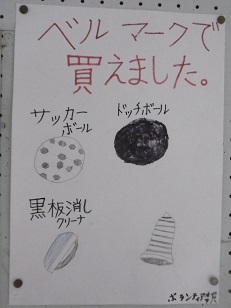 ベルマークで
買えました。
サッカー
ボール
ドッチボール
黒板消し
クリーナ